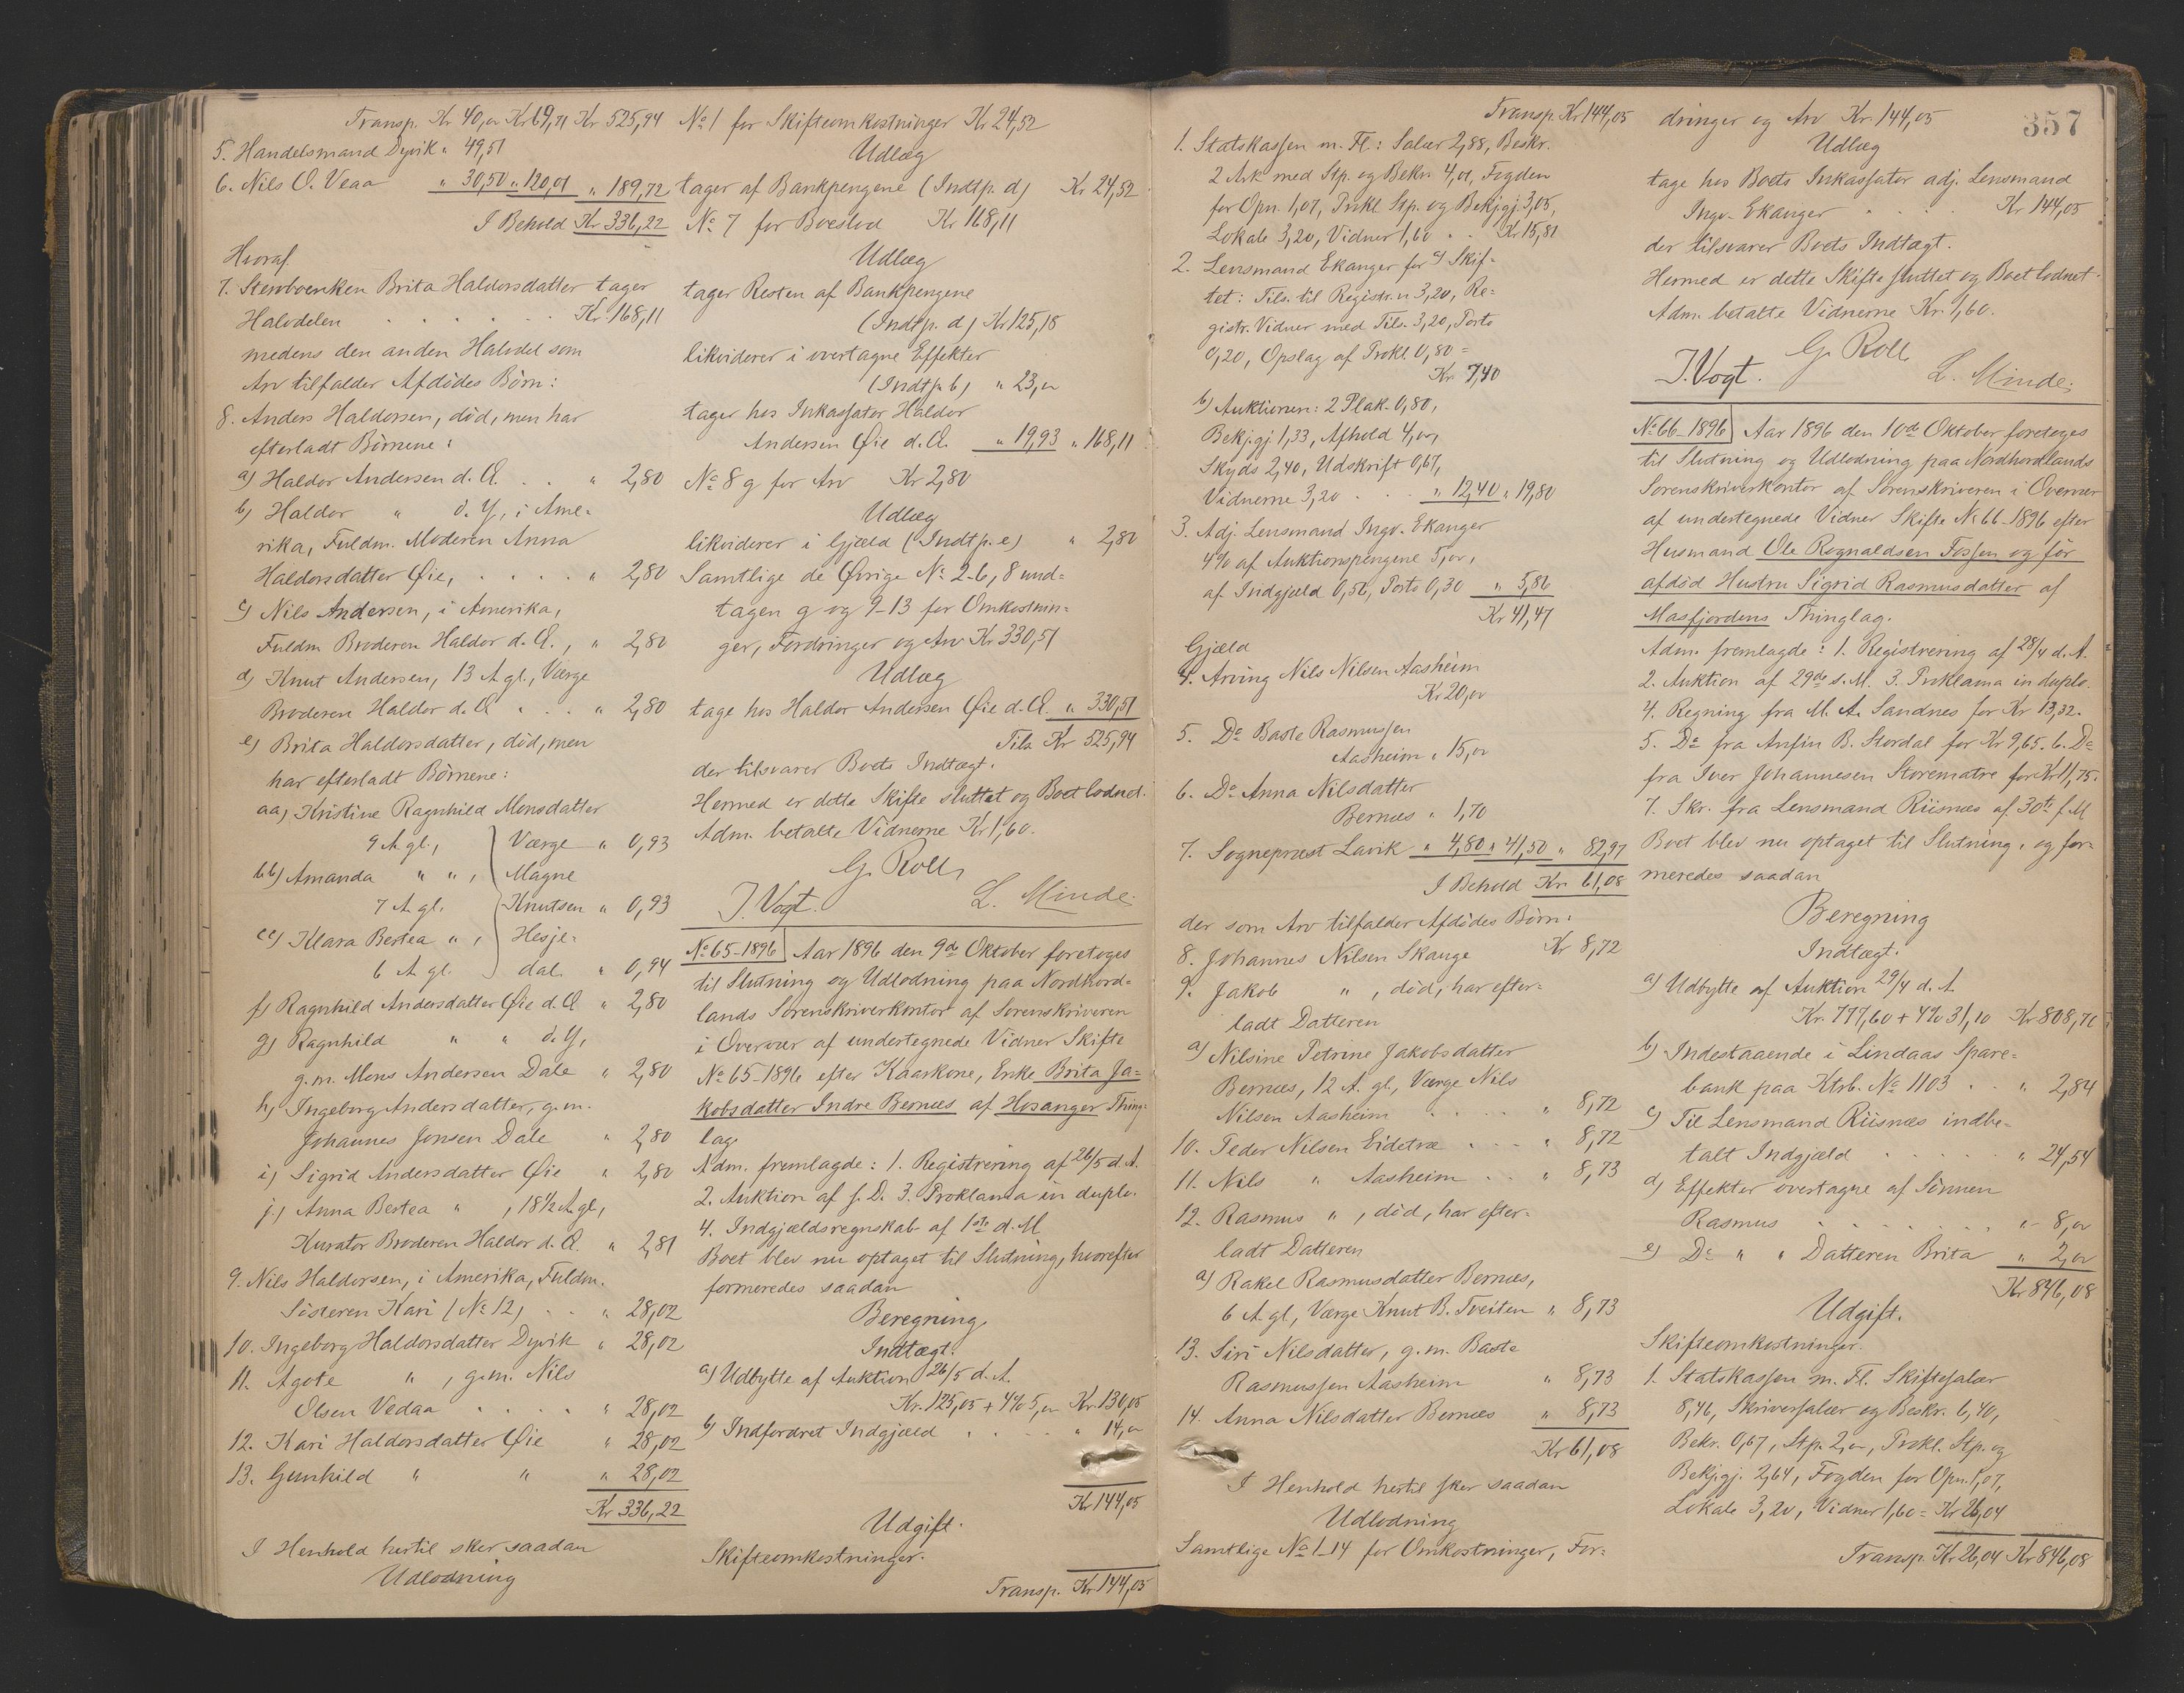 Transp. Kr 40,00 Kr 69,71 Kr 525,94
5. Handelsmand Dyvik " 49,51
6. Nils O. Veaa " 30,50 " 120,01 " 189,72
I Behold Kr 336,22
Hvoraf
7. Stervboenken Brita Haldorsdatter tager
Halvdelen . . . . . . Kr. 168,11
medens den anden Halvdel som
Arv tilfalder Afdødes Børn:
8. Anders Haldorsen, død, men har
efterladt Børnene:
a) Haldor Andersen d. Æ. . . " 2,80
b) Haldor " d. Y., i Ame-
rika, Fuldm. Moderen Anna
Haldorsdatter Øie, . . . . " 2,80
c) Nils Andersen, i Amerika,
Fuldm Broderen Haldor d. Æ., " 2,80
d) Knut Andersen, 13 A gl., Værge
Broderen Haldor d. Æ . . . " 2,80
e) Brita Haldorsdatter, død, men
har efterladt Børnene:
aa) Kristine Ragnhild Monsdatter
9 A gl., Værge " 0,93
bb) Amanda " ", Magne
7 A gl. Knutsen " 0,93
cc) Klara Bertea ", Hesje-
6 A gl. dal. " 0,94
f) Ragnhild Andersdatter Øie d. Æ " 2,80
g) Ragnhild " " d. Y.,
g.m. Mons Andersen Dale " 2,80
h) Ingeborg Andersdatter, g.m.
Johannes Jonsen Dale " 2,80
i) Sigrid Andersdatter Øie " 2,80
j) Anna Bertea " , 18½ A gl,
Kurator Broderen Haldor d. Æ. " 2,81
9. Nils Haldorsen, i Amerika, Fuldm.
Søsteren Kari (No 12) . . " 28,02
10. Ingeborg Haldorsdatter Dyvik " 28,02
11. Agote " , g.m. Nils
Olsen Vedaa . . . . " 28,02
12. Kari Haldorsdatter Øie " 28,02
13. Gunhild " " " 28,02
Kr 336,22
I Henhold hertil sker saadan
Udlodning
No 1 for Skifteomkostninger Kr 24,52
Udlæg
tager af Bankpengene (Indtp. d) Kr 24,52
No 7 for Boeslod Kr 168,11
Udlæg
tager Resten af Bankpengene
(Indtp. d) Kr 125,18
likviderer i overtagne Effekter
(Indtp. b) " 23,00
tager hos Inkassator Haldor
Andersen Øie d. Æ. " 19,93 " 168,11
No 8 g for Arv Kr 2,80
Udlæg
likviderer i Gjæld (Indtp. e) " 2,80
Samtlige de Øvrige No 2-6, 8 und-
tagen g og 9-13 for Omkostnin-
ger, Fordringer og Arv Kr 330,51
Udlæg
tage hos Haldor Andersen Øie d. Æ. " 330,51
Tils. Kr 525,94
der tilsvarer Boets Indtægt.
Hermed er dette Skifte sluttet og Boet lodnet.
Adm. betalte Vidnerne Kr 1,60.
G. Roll
J. Vogt. L. Minde.
No 65-1896 Aar 1896 den 9de Oktober foretoges
til Slutning og Udlodning paa Nordhord-
lands Sorenskriverkontor af Sorenskriveren
i Overvær af undertegnede Vidner Skifte
No 65-1896 efter Kaarkone, Enke Brita Ja-
kobsdatter Indre Bernæs af Hosanger Thing-
lag.
Adm. fremlagde: 1. Registrering af 26/5 d. A.
2. Auktion af s. D. 3. Proklama in duplo.
4. Indgjældsregnskab af 1ste d. M
Boet blev nu optaget til Slutning, hvorefter
formeredes saadan
Beregning
Indtægt.
a) Udbytte af Auktion 26/5 d. A.
Kr. 125,05 + 4% 5,00 Kr. 130,05
b) Indfordret Indgjæld . . . . " 14,00
Kr 144,05
Udgift.
Skifteomkostninger.
Transp. Kr 144,05
357
Transp Kr 144,05
1. Statskassen m. Fl.: Salær 2,88, Beskr.
2 Ark med Stp. og Bekr. 4,01, Fogden
for Opn. 1,07, Prokl. Stp. og Bekjgj. 3,05,
Lokale 3,20, Vidner 1,60 . . Kr. 15,81
2. Lensmand Ekanger for a) Skif-
tet: Tils. til Registr.n 3,20, Re-
gistr. Vidner med Tils. 3,20, Porto
0,20, Opslag af Prokl 0,80 =
Kr. 7,40
b) Auktionen: 2 Plak. 0,80,
Bekjgj. 1,33, Afhold 4,00,
Skyds 2,40, Udskrift 0,67,
Vidnerne 3,20 . . . " 12,40 " 19,80
3. Adj. Lensmand Ingv. Ekanger
4% af Auktionspengene 5,00,
af Indgjæld 0,56, Porto 0,30 " 5,86
Kr 41,47
Gjæld
4. Arving Nils Nilsen Aasheim
Kr. 20,00
5. Do Baste Rasmussen
Aasheim " 15,00
6. Do Anna Nilsdatter
Bernæs " 1,70
7. Sogneprest Lavik " 4,80 " 41,50 " 82,97
I Behold Kr. 61,08
der som Arv tilfalder Afdødes Børn:
8. Johannes Nilsen Skauge Kr 8,72
9. Jakob " , død, har efter-
ladt Datteren
a) Nilsine Petrine Jakobsdatter
Bernæs, 12 A. gl., Værge Nils
Nilsen Aasheim . . . . " 8,72
10. Peder Nilsen Eidetræ . . . " 8,72
11. Nils " Aasheim . . " 8,73
12. Rasmus " , død, har efter-
ladt Datteren
a) Rakel Rasmusdatter Bernæs,
6 A. gl, Værge Knut B. Tveiten " 8,73
13. Siri Nilsdatter, g.m. Baste
Rasmussen Aasheim " 8,73
14. Anna Nilsdatter Bernæs " 8,73
Kr 61,08
I Henhold hertil sker saadan
Udlodning
Samtlige No 1-14 for Omkostninger, For-
dringer og Arv Kr. 144,05
Udlæg
tage hos Boets Inkassator adj. Lensmand
Ingv. Ekanger . . . . Kr 144,05
der tilsvarer Boets Indtægt.
Hermed er dette Skifte sluttet og Boet lodnet.
Adm. betalte Vidnerne Kr. 1,60.
G. Roll
J. Vogt. L. Minde.
No 66-1896 Aar 1896 den 10de Oktober foretoges
til Slutning og Udlodning paa Nordhordlands
Sorenskriverkontor af Sorenskriveren i Overvær
af undertegnede Vidner Skifte No 66-1896 efter
Husmand Ole Rognaldsen Fossen og før
afdød Hustru Sigrid Rasmusdatter af
Masfjordens Thinglag.
Adm. fremlagde: 1. Registrering af 28/4 d. A.
2. Auktion af 29de s. M. 3. Proklama in duplo.
4. Regning fra M. A. Sandnes for Kr 13,32.
5. Do fra Anfin B. Stordal for Kr 9,65. 6. Do
fra Iver Johannesen Storematre for Kr 11,75.
7. Skr. fra Lensmand Riisnæs af 30te f. M
Boet blev nu optaget til Slutning, og for-
meredes saadan
Beregning
Indtægt.
a) Udbytte af Auktion 29/4 d. A.
Kr. 777,60 + 4% 31,10 Kr 808,70
b) Indestaaende i Lindaas Spare-
bank paa Ktrb. No 1103 . . " 2,84
c) Til Lensmand Riisnæs indbe-
talt Indgjæld . . . . . " 24,54
d) Effekter overtagne af Sønnen
Rasmus . . . . . . . " 8,00
e) Do " " Datteren Brita " 2,00
Kr 846,08
Udgift.
Skifteomkostninger.
1. Statskassen m. Fl. Skiftesalær
8,46, Skriversalær og Beskr. 6,40,
Bekr. 0,67, Stp. 2,00, Prokl. Stp. og
Bekjgj. 2,64, Fogden for Opn. 1,07,
Lokale 3,20, Vidner 1,60 = Kr 26,04
Transp. Kr 26,04 Kr 846,08